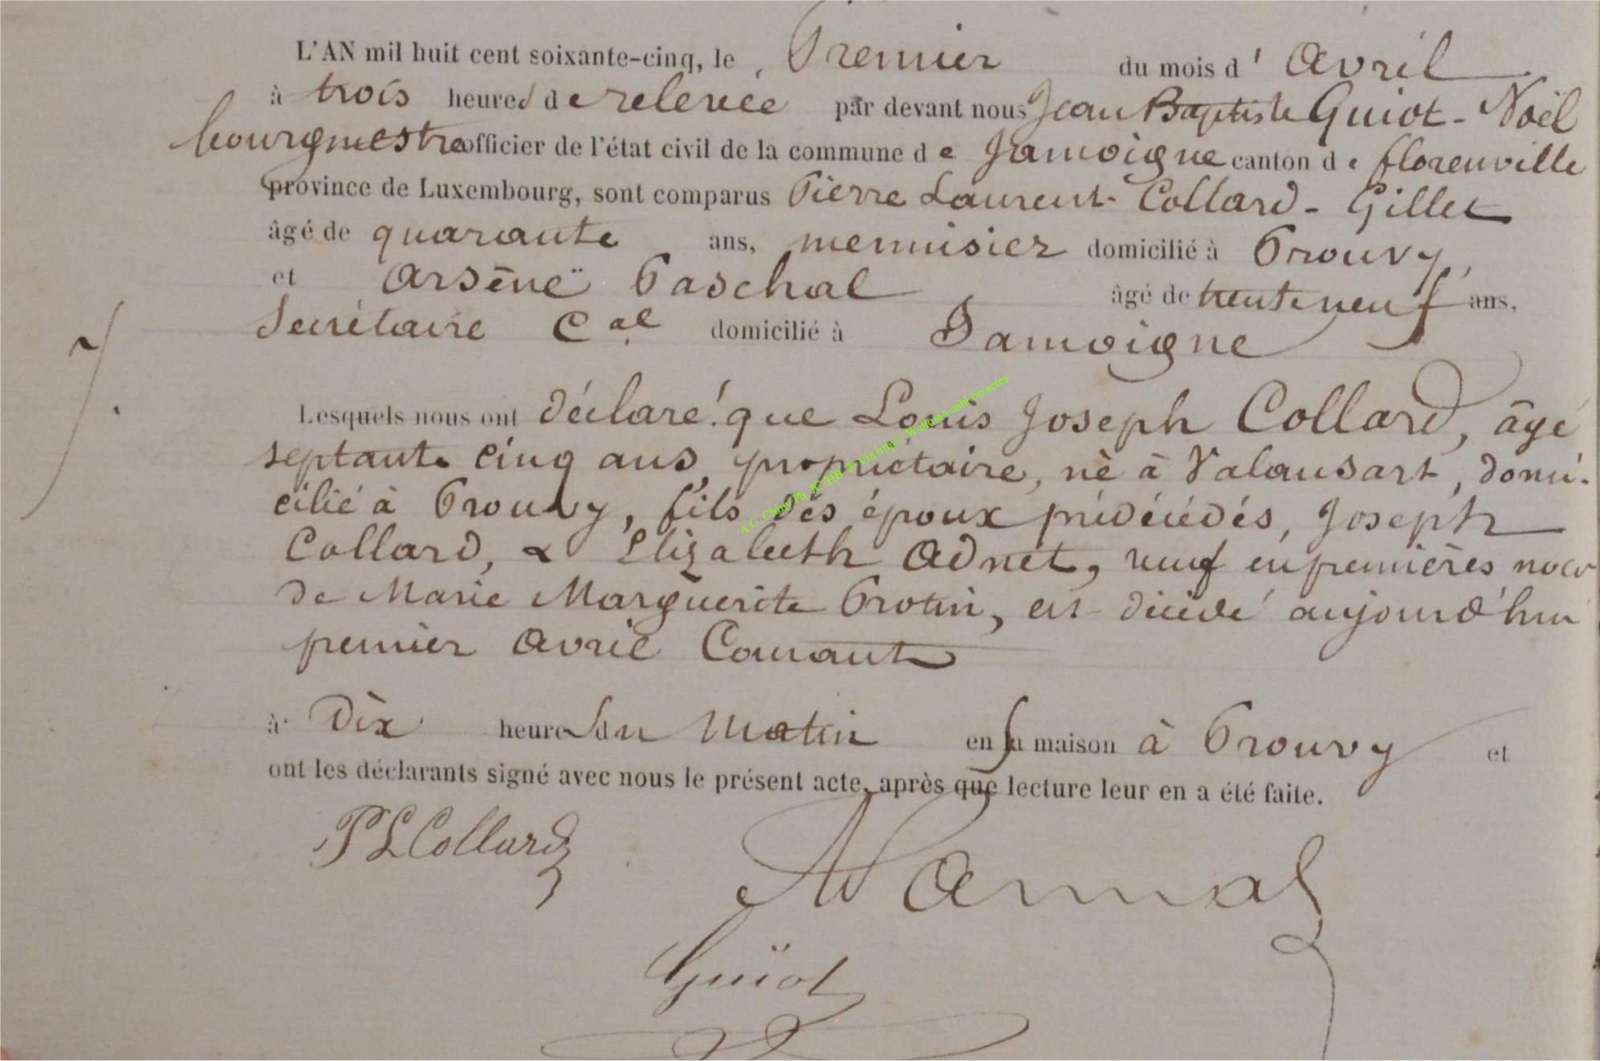 L'AN mil huit cent soixante-cinq, le Premier du mois d' Avril
à trois heures de relevée par devant nous Jean Baptiste Guiot - Noël
bourgmestre officier de l'état civil de la commune de Jamoigne canton de florenville
province de Luxembourg, sont comparus Pierre Laurent Collard - Gillet
âgé de quarante ans, menuisier domicilié à Prouvy,
et Arsène Paschal âgé de trente neuf ans,
Secrétaire Cal domicilié à Jamoigne
7.
Lesquels nous ont déclaré que Louis Joseph Collard, âgé
septante cinq ans, propriétaire, né à Valansart, domi-
cilié à Prouvy, fils des époux prédécédés, Joseph
Collard, & Elizabeth Adnet, veuf en premières noces
de Marie Marguerite Protin, est décédé aujourd'hui
premier avril Courant
à Dix heures du Matin en sa maison à Prouvy et
ont les déclarants signé avec nous le présent acte, après que lecture leur en a été faite.
P L Collard
Guïot